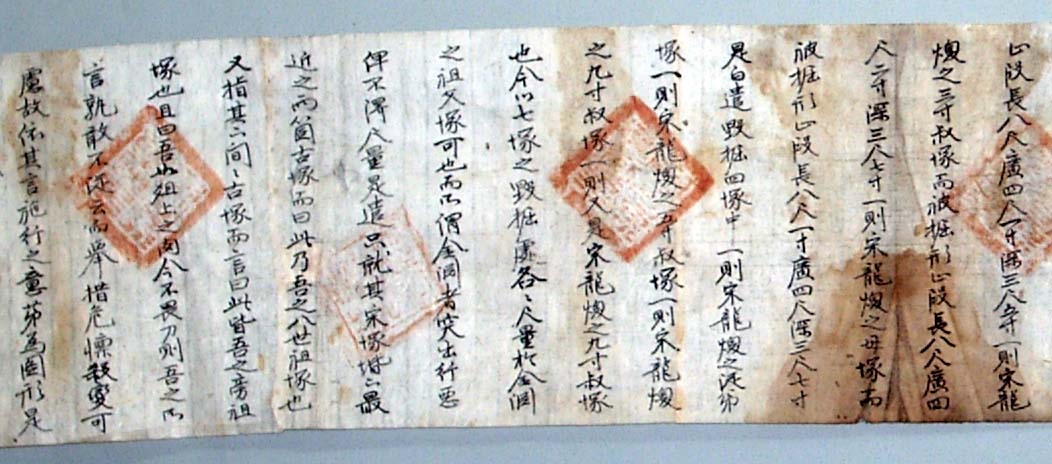 止段長八尺廣四尺一寸深三尺五寸一則宋龍
煥之三寸叔塚而被掘形止段長八尺廣四
尺二寸深三尺七寸一則宋龍煥之母塚而
被掘形止段長八尺一寸廣四尺深三尺七寸
是白遣毀掘四塚中一則宋龍煥之從弟
塚一則宋龍煥之五寸叔塚一則宋龍煥
之九寸叔塚一則又是宋龍煥之九寸叔塚
也今此七塚之毀掘處各〻尺量於全
之祖父塚可也而所謂全 者突出行惡
俾不得尺量是遣只就其宋塚階下最
近之兩箇古塚而曰此乃吾之八世祖塚也
又指其下間〻古塚而言曰此皆吾之旁祖
塚也且曰吾 祖上之 今不畏刀則吾之所
言孰敢不從云而擧措危懍殺變可
慮故依其言施行之意 爲圖形是